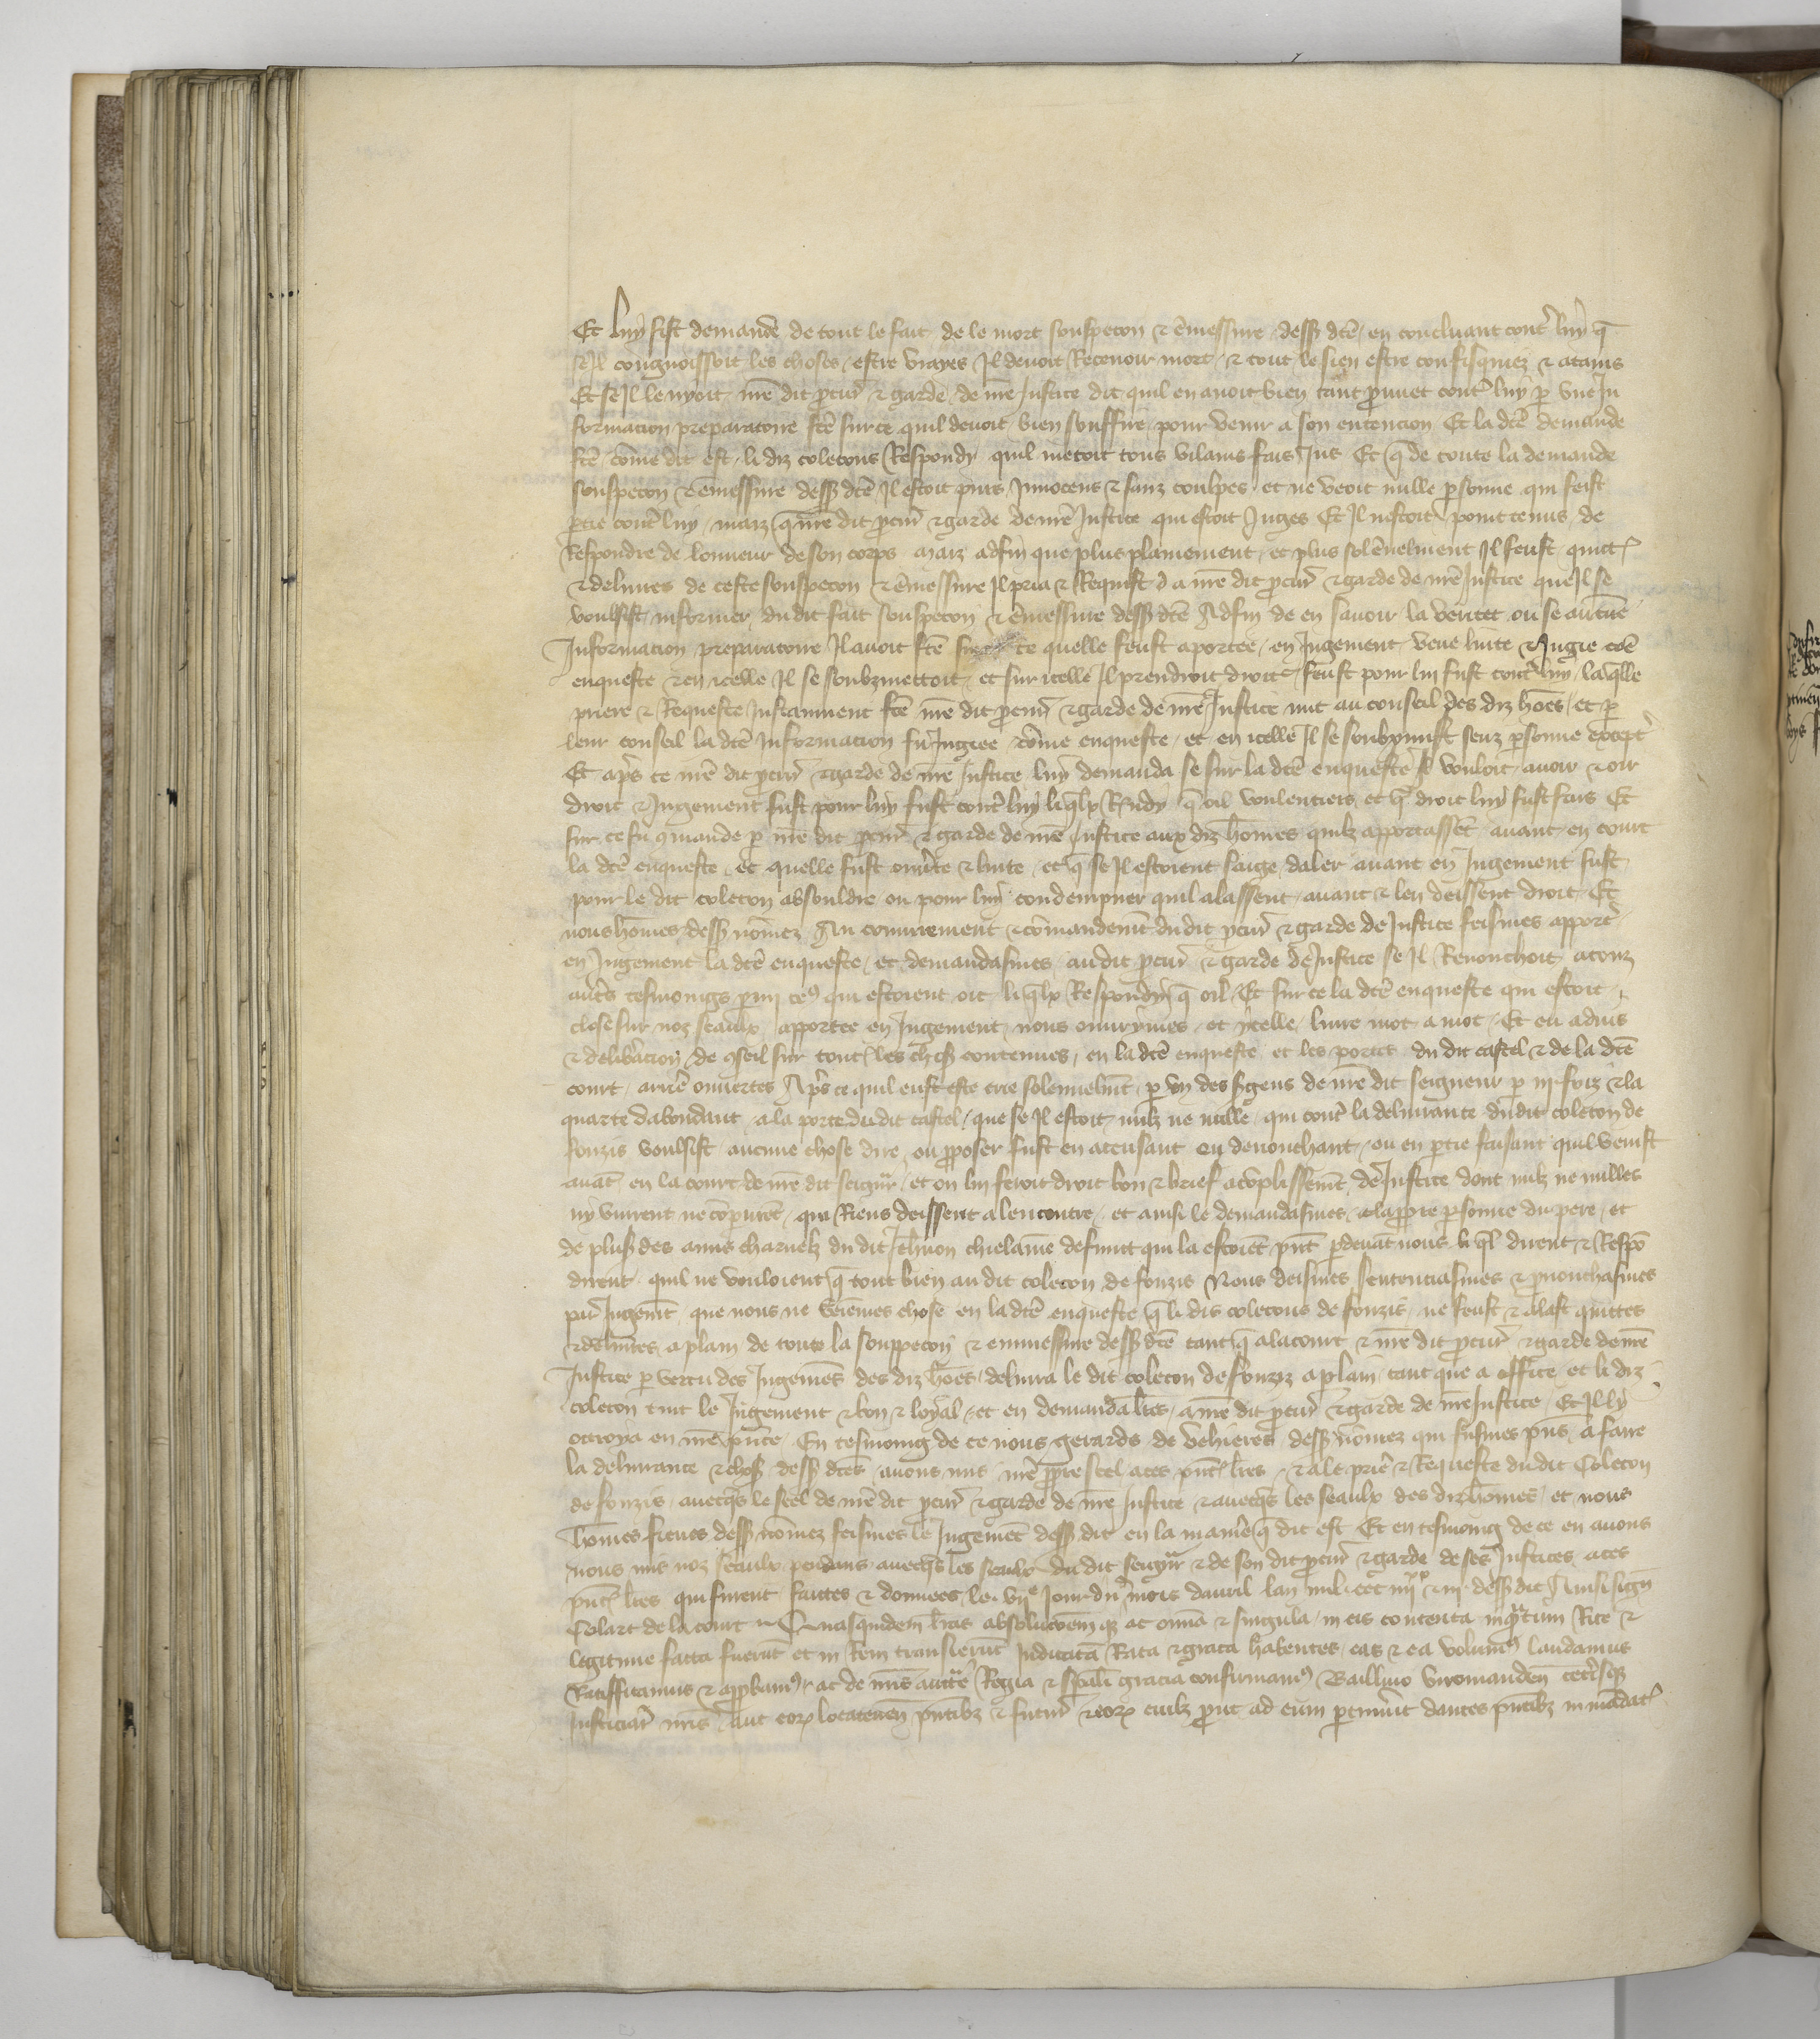 Et luy fist demande de tout le fait de le mort souspecon & ēmessure dess dcē en concluant cont̄ luy q̄
sil congnoissoit les choses estre vrayes Il devoit Recevoir mort & tout le sien estre confisquiez & atains
Et se Il le nyoit mē dit p̄cur̄ & garde de mē Justice dit quil en avoit bien tant prouvet cont̄ luy p̄ une In
formacion preparatoire fcē sur ce quil devoit bien souffire pour venir a son entencion Et la dcē demande
fcē cōme dit est li diz colecons Respondy quil metoit tous vilains fais Jus Et q̄ de toute la demande
souspecon & ēmessure dess dcē Il estoit purs Innocens & sanz coulpes et ne veoit nulle p̄sonne qui feist
p̄tie cont̄ luy maiz q̄ mē dit p̄cur̄ & garde de mē Justice qui estoit Juges Et Il nestoit point tenus de
Respondre de lonneur de son corps maiz adfin que plus plainement et plus solēnelment Il feust quitt
& delivres de ceste souspecon & ēmessure Il pria & Requist a mē dit p̄cur̄ & garde de mē Justice que Il se
voulsist informer du dit fait souspecon & ēmessure dess dcē Adfin de en savoir la veritet ou se aucune
Information preparatoire Il avoit fcē sur ce quelle feust aportee en Jugement veue luite & Jugie cōē
enqueste & en icelle Il se soubzmettoit et sur icelle Il prendroit droit feust pour lui fust cont̄ luy la q̄lle
priere & Requeste Instanment fcē mē dit p̄cur̄ & garde de mē Justice mit au conseil des diz hōēs et p̄
leur conseil la dcē Information fu Jugiee cōme enqueste et en icelle Il se soubzmist senz p̄sonne except̄
Et ap̄s ce mē dit p̄cur̄ & garde de mē Justice luy demanda se sur la dcē enqueste Il vouloit avoir & oir
droit & Jugement fust pour luy fust cont̄ luy liq̄lx R̄ndy q̄ oil voulentiers et q̄ droit luy fust fais Et
sur ce fu 9mande p̄ mē dit p̄cur̄ & garde de mē Justice aux diz hōmes quilz apportassēt avant en court
la dcē enqueste et quelle fust ouv̄te & luite et q̄ se Il estoient saige daler avant en Jugement fust
pour le dit colecon absouldre ou pour luy condempner quil alassent avant & len deissent droit Et
nous hōmes dess nōmez Au conjurement & cōmandemt̄ du dit p̄cur̄ & garde de Justice feismes apport̄
en Jugement la dcē enqueste et demandasmes au dit p̄cur̄ & garde de Justice se Il Renonchoit a touz
aut̄s tesmoings p̄mi ceˀ qui estoient oit liq̄lx Respondy q̄ oil Et sur ce la dcē enqueste qui estoit
close sur noz seaulx apportee en Jugement nous ouvrimes et ycelle luire mot a mot Et eu advis
& delib̄acion de 9seil sur tout les chos̄ contenues en la dcē enqueste et les portes du dit castel & de la dcē
court arrē ouvertes Ap̄s ce quil eust este crie solennelmt̄ p̄ un des s̄gens de mē dit seigneur p̄ iij foiz & la
quarte dabondant a la porte du dit castel que se Il estoit nulz ne nulle qui cont̄ la delivrance du dit colecon de
fonzis voulsist aucune chose dire ou p̄poser fust en accusant ou denonchant ou en p̄tie faisant quil venist
avāt en la court de mē dit seign̄r et on lui feroit droit bon & brief acōplissemt̄ de Justice dont nulz ne nulles
ny vinrent ne cōparurēt qui Riens deissent alencontre et ainsi le demandasmes a la p̄pre p̄sonne du pere et
de plus̄ des amis charnelz du dit Jehnon chielame defunct qui la estoiēt p̄nt p̄devāt nous li q̄l dirent & Respō
dirent quil ne vouloient q̄ tout bien au dit colecon de fonzis Nous deismes sentenciasmes & p̄nonchasmes
par Jugemt̄ que nous ne veiemes chose en la dcē enqueste q̄ li dis colecons de fonzis ne feust & alast quittes
& delivres a plain de toute la souppecon & enmessure dess dcē tant q̄ a la court & mē dit p̄cur̄ & garde de mē
Justice p̄ vertu des Jugemēs des diz hōēs delivra le dit colecon de fonziz a plain tant que a office et li diz
colecon tint le Jugement & bon & loyal et en demanda lr̄es a mē dit p̄cur̄ & garde de mē Justice Et Il ly
ottroya en mē p̄nce En tesmoing de ce nous gerards de vehieres dess nōmez qui fusmes p̄ns a faire
la delivrance & chos̄ dess dcēs avons mis mē p̄pre seel a ces p̄nt lr̄es & a le priē & Requeste du dit Colecon
de fonzis avecq̄s le seel de mē dit p̄cur̄ & garde de mē Justice & avecq̄s les seaulx des diz hōmes et nous
hōmes fieves dess nōmez feismes le Jugemēt dess dit en la maniē q̄ dit est Et en tesmoing de ce en avons
nous mis noz seaulx pendans avecq̄s les seaulx du dit seign̄r & de son dit p̄cur̄ & garde de ses Justices a ces
p̄nt lr̄es qui furent faictes & donnees le vijᵉ Jour du mois davril lan mil ccc iiijˣˣ & iij dess dit Ainsi sign̄
Colart de la court Quasquidem lr̄as absolucōem q̄ ac omīa & singula in eis contenta inq̄ntum Rite &
legitime facta fuerūt et in Rem transierūt Judicatā Rata & grata habentes eas & ea volumˀ laudamus
Ratifficamus & app̄bamˀ ac de nr̄is auct̄te Regia & sp̄ali gracia confirmamˀ Baillivo viromanden cet̄isq̄
Justiciar̄ nr̄is aut eor̄ locatenen p̄ntibz & futur̄ & eor̄ cuilz prout ad eum p̄tinuit dantes p̄ntibz in mādat